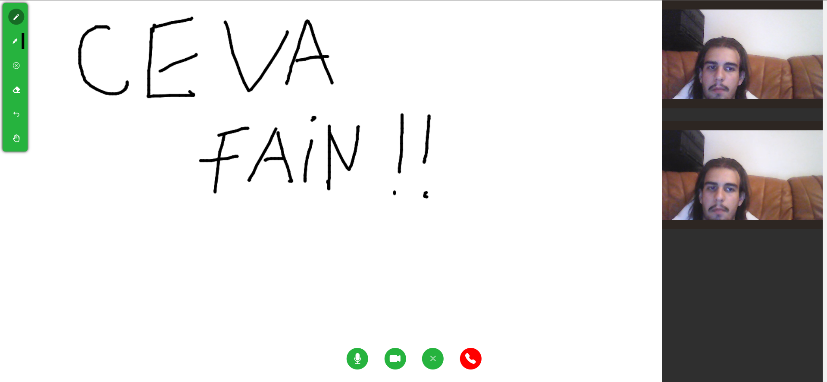 CEVA
FAiN !!